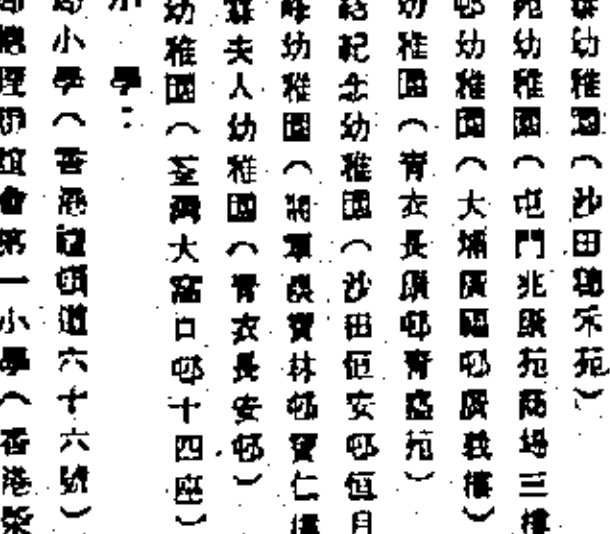 幼稚園（沙田穗禾苑）
苑幼稚園（屯門兆康苑商場三樓
邨幼稚園（大埔廣福邨廣義樓）
幼稚園（青衣長康邨青盛苑）
紀念幼稚園（沙田恒安邨恒月
幼稚園（將軍澳寶林邨寶仁樓
夫人幼稚園（青衣長安邨）
幼稚園（荃灣大窩口邨十四座）
小學：
小學（香港 道六十六號）
總理 會第一小學（香港柴